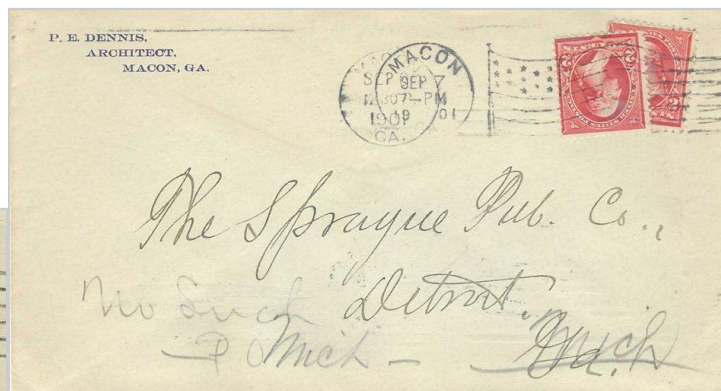 P. E. DENNIS,
ARCHITECT,
MACON, GA.
MACON
SEP 7
PM
1901
GA.
The Sprague Pub. Co.,
Detroit.
No Such
P O Mich
Ga.
Mich